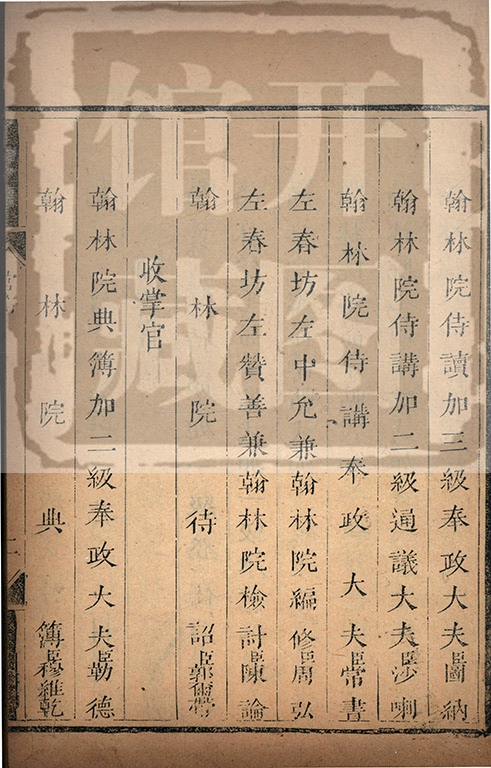 翰林院侍讀加三級奉政大夫臣圖納
翰林院侍講加二級通議大夫臣沙喇
翰林院侍講奉政大夫臣常書
左春坊左中允兼翰林院編修臣周弘
左春坊左贊善兼翰林院檢討臣陳論
翰林院待詔臣郭
收掌官
翰林院典簿加二級奉政大夫臣勒德
翰林院典簿臣穆維乾
开
馆
藏